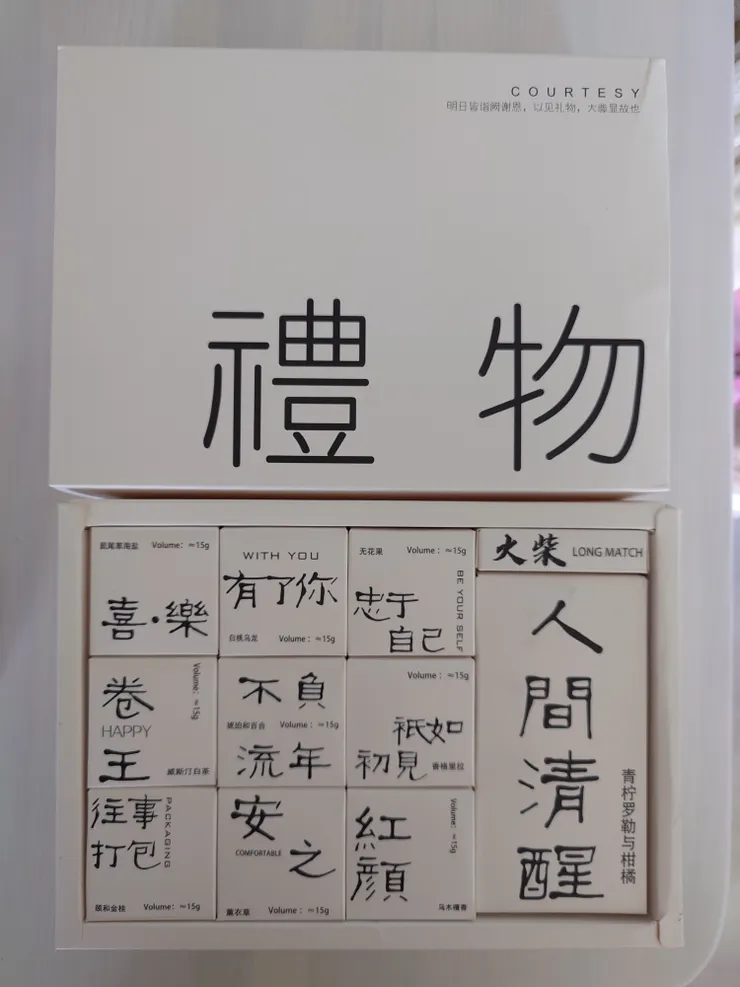 COURTESY
明日皆诣阙谢恩，以见礼物，大蕃显故也
禮 物
鼠尾草海盐 Volume: ≈15g
喜·樂
WITH YOU
有了你
白桃乌龙 Volume: ≈15g
无花果 Volume: ≈15g
忠于
自己
BE YOUR SELF
火柴 LONG MATCH
卷
HAPPY
王
Volume: ≈15g
威斯汀白茶
不負
琥珀和百合 Volume: ≈15g
流年
Volume: ≈15g
祇如
初見
香格里拉
往事
打包
PACKAGING
颐和金桂 Volume: ≈15g
安
COMFORTABLE
之
薰衣草 Volume: ≈15g
紅
顏
Volume: ≈15g
乌木檀香
人
間
清
醒
青柠罗勒与柑橘